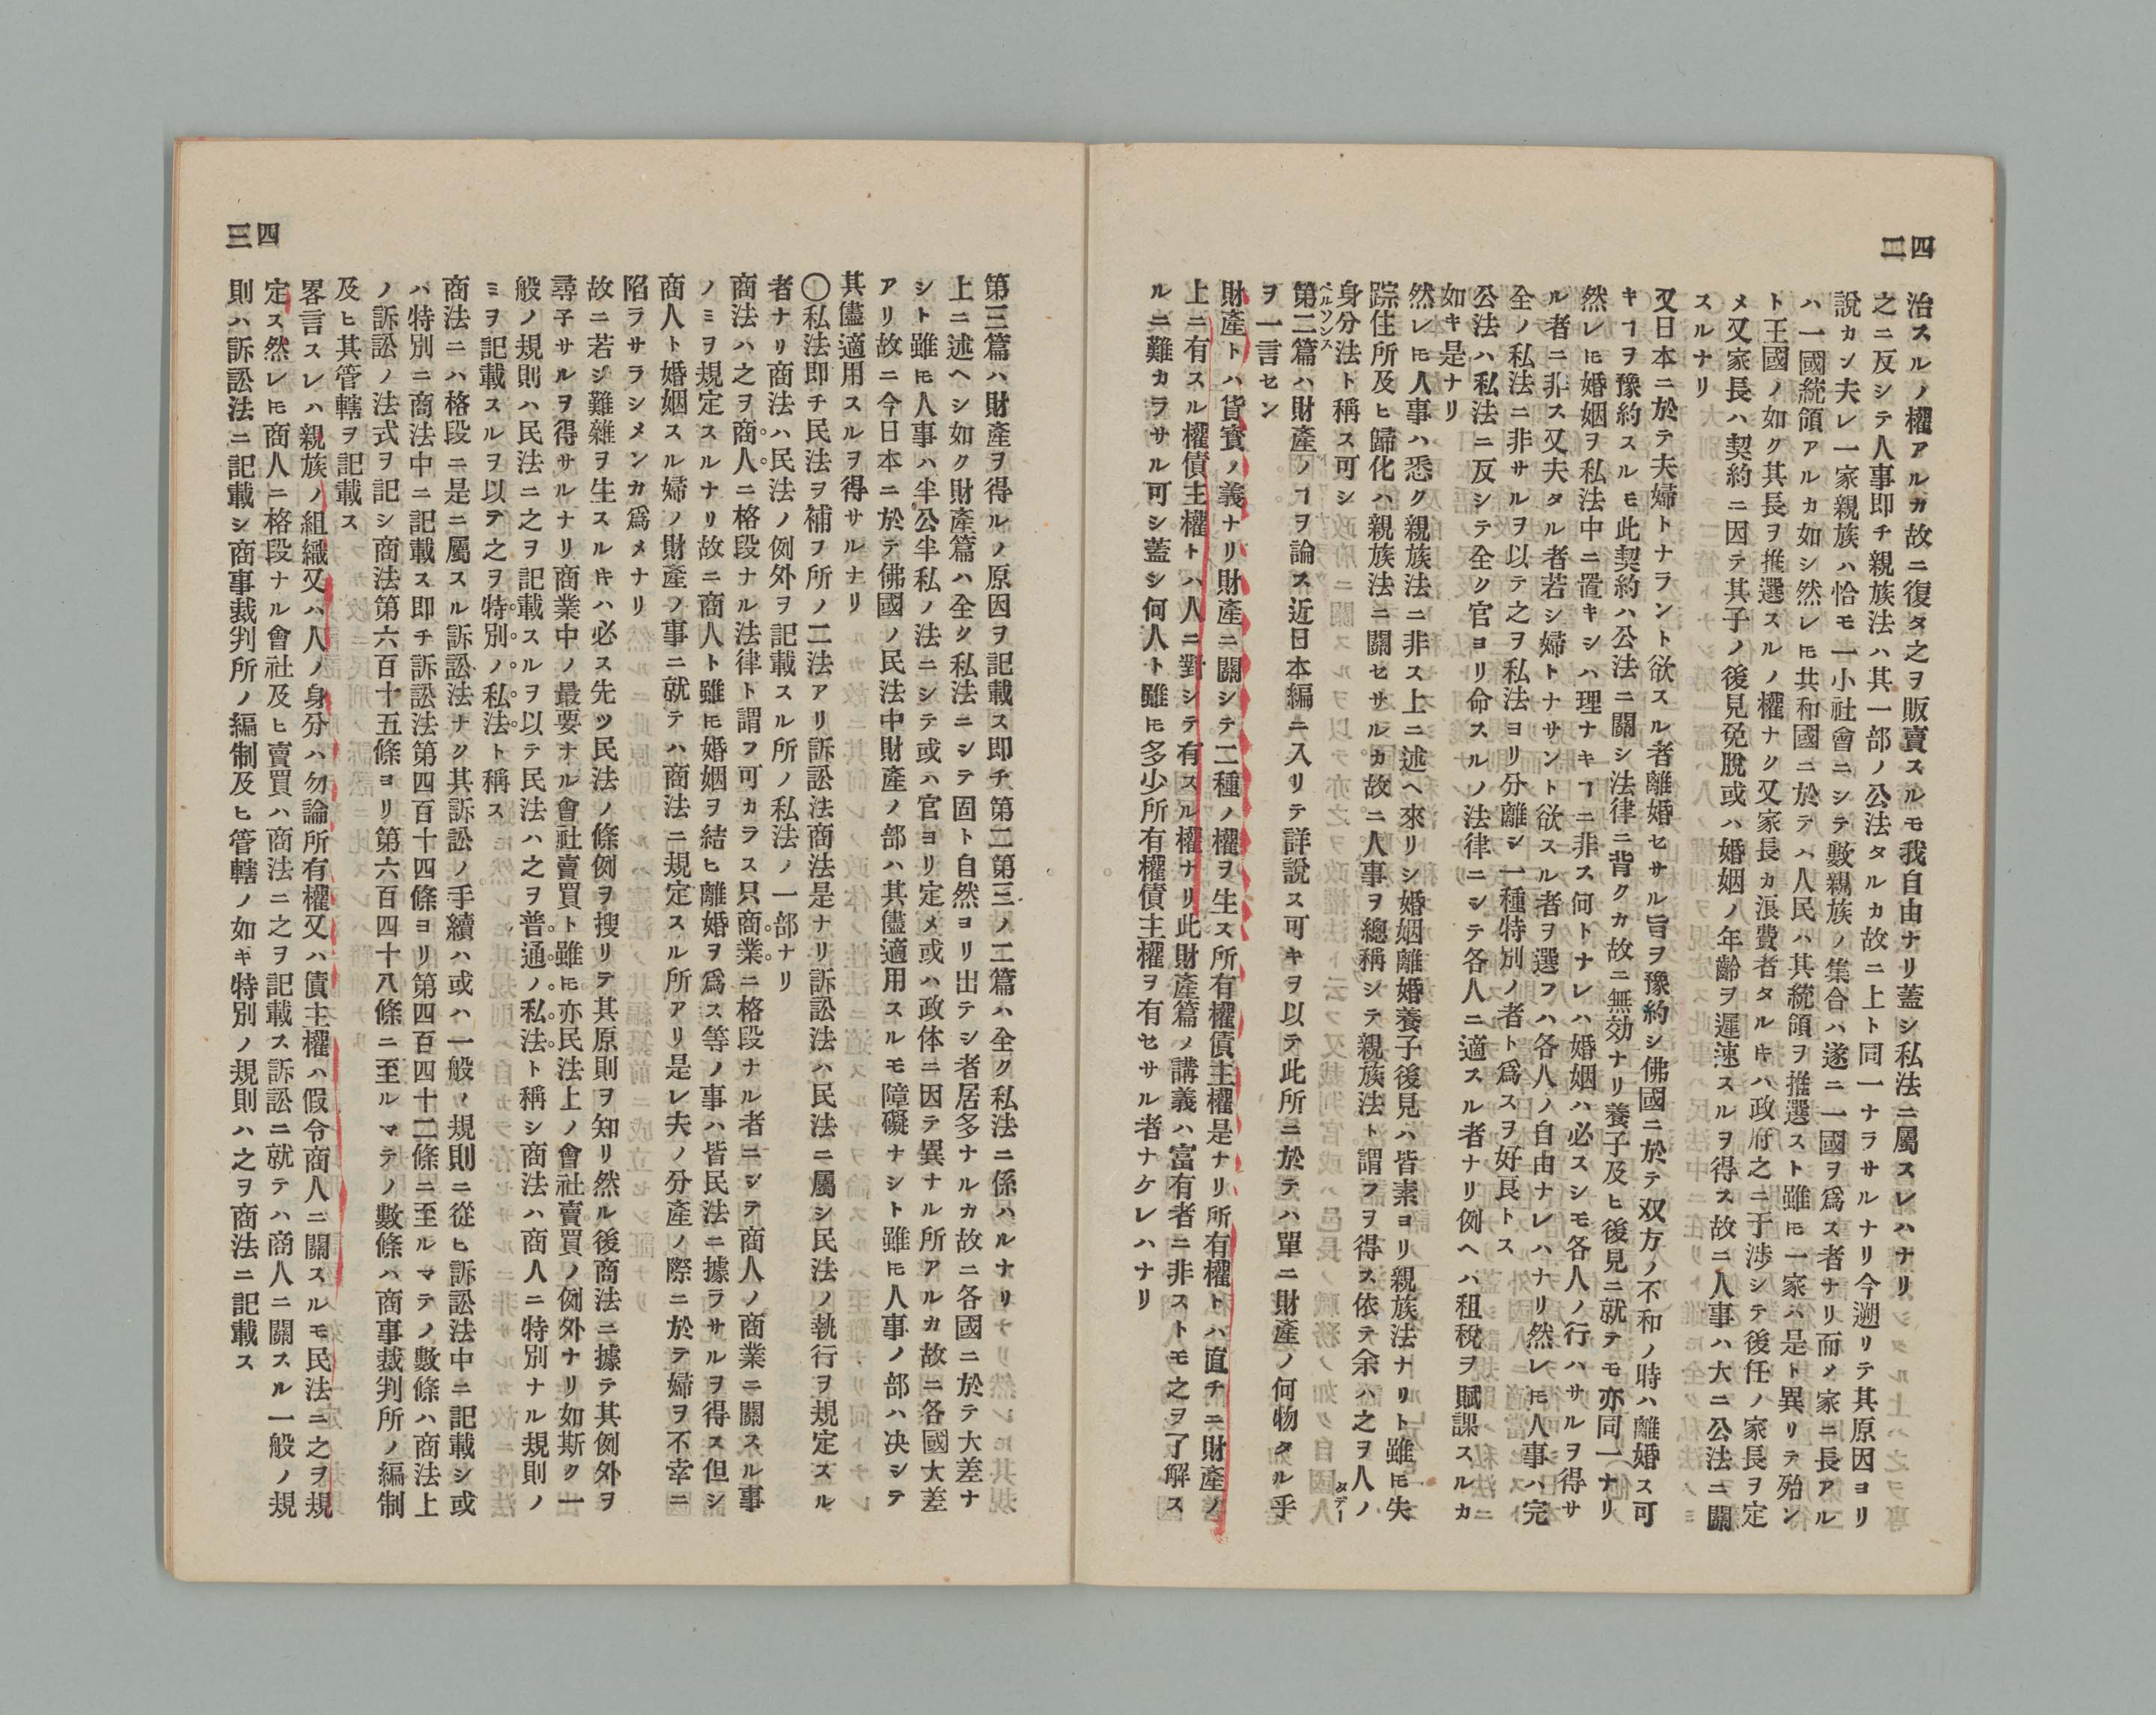 四二
治スルノ權アルカ故ニ復タ之ヲ販賣スルモ我自由ナリ蓋シ私法ニ屬スレハナリ
之ニ反シテ人事即チ親族法ハ其一部ノ公法タルカ故ニ上ト同一ナラサルナリ今遡リテ其原因ヨリ
說カン夫レ一家親族ハ恰モ一小社會ニシテ數親族ノ集合ハ遂ニ一國ヲ爲ス者ナリ而メ家ニ長アル
ハ一國統領アルカ如シ然レ𪜈共和國ニ於テハ人民ハ其統領ヲ推選スト雖𪜈一家ハ是ト異リテ殆ン
ト王國ノ如ク其長ヲ推選スルノ權ナク又家長カ浪費者タル𪜈ハ政府之ニ干渉シテ後任ノ家長ヲ定
メ又家長ハ契約ニ因テ其子ノ後見免脫或ハ婚姻ノ年齡ヲ遲速スルヲ得ス故ニ人事ハ大ニ公法ニ關
スルナリ
又日本ニ於テ夫婦トナラント欲スル者離婚セサル旨ヲ豫約シ佛國ニ於テ双方ノ不和ノ時ハ離婚ス可
キヿヲ豫約スルモ此契約ハ公法ニ關シ法律ニ背クカ故ニ無効ナリ養子及ヒ後見ニ就テモ亦同一ナリ
然レ𪜈婚姻ヲ私法中ニ置キシハ理ナキヿニ非ス何トナレハ婚姻ハ必スシモ各人ノ行ハサルヲ得サ
ル者ニ非ス又夫タル者若シ婦トナサント欲スル者ヲ選フハ各人ノ自由ナレハナリ然レ𪜈人事ハ完
全ノ私法ニ非サルヲ以テ之ヲ私法ヨリ分離シ一種特別ノ者ト爲スヲ好良トス
公法ハ私法ニ反シテ全ク官ヨリ命スルノ法律ニシテ各人ニ適スル者ナリ例ヘハ租稅ヲ賦課スルカ
如キ是ナリ
然レ𪜈人事ハ悉ク親族法ニ非ス上ニ述ヘ來リシ婚姻離婚養子後見ハ皆素ヨリ親族法ナリト雖𪜈失
踪住所及ヒ歸化ハ親族法ニ關セサルカ故ニ人事ヲ總稱シテ親族法ト謂フヲ得ス依テ余ハ之ヲ人ノ
身分法ト稱ス可シ
第二篇ハ財產ノヿヲ論ス近日本編ニ入リテ詳說ス可キヲ以テ此所ニ於テハ單ニ財產ノ何物タル乎
ヲ一言セン
財產トハ貨寳ノ義ナリ財產ニ關シテ二種ノ權ヲ生ス所有權債主權是ナリ所有權トハ直チニ財產ノ
上ニ有スル權債主權トハ人ニ對シテ有スル權ナリ此財產篇ノ講義ハ富有者ニ非ストモ之ヲ了解ス
ルニ難カラサル可シ蓋シ何人ト雖𪜈多少所有權債主權ヲ有セサル者ナケレハナリ
四三
第三篇ハ財產ヲ得ルノ原因ヲ記載ス即チ第二第三ノ二篇ハ全ク私法ニ係ハルナリ
上ニ述ヘシ如ク財產篇ハ全ク私法ニシテ固ト自然ヨリ出テシ者居多ナルカ故ニ各國ニ於テ大差ナ
シト雖𪜈人事ハ半公半私ノ法ニシテ或ハ官ヨリ定メ或ハ政体ニ因テ異ナル所アルカ故ニ各國大差
アリ故ニ今日本ニ於テ佛國ノ民法中財產ノ部ハ其儘適用スルモ障礙ナシト雖𪜈人事ノ部ハ决シテ
其儘適用スルヲ得サルナリ
〇私法即チ民法ヲ補フ所ノ二法アリ訴訟法商法是ナリ訴訟法ハ民法ニ屬シ民法ノ執行ヲ規定スル
者ナリ商法ハ民法ノ例外ヲ記載スル所ノ私法ノ一部ナリ
商法ハ之ヲ商人ニ格段ナル法律ト謂フ可カラス只商業ニ格段ナル者ニシテ商人ノ商業ニ關スル事
ノミヲ規定スルナリ故ニ商人ト雖𪜈婚姻ヲ結ヒ離婚ヲ爲ス等ノ事ハ皆民法ニ據ラサルヲ得ス但シ
商人ト婚姻スル婦ノ財產ノ事ニ就テハ商法ニ規定スル所アリ是レ夫ノ分產ノ際ニ於テ婦ヲ不幸ニ
陷ラサラシメンカ爲メナリ
故ニ若シ難雜ヲ生スル𪜈ハ必ス先ツ民法ノ條例ヲ搜リテ其原則ヲ知リ然ル後商法ニ據テ其例外ヲ
尋子サルヲ得サルナリ商業中ノ最要ナル會社賣買ト雖𪜈亦民法上ノ會社賣買ノ例外ナリ如斯ク一
般ノ規則ハ民法ニ之ヲ記載スルヲ以テ民法ハ之ヲ普通ノ私法ト稱シ商法ハ商人ニ特別ナル規則ノ
ミヲ記載スルヲ以テ之ヲ特別ノ私法ト稱ス
商法ニハ格段ニ是ニ屬スル訴訟法ナク其訴訟ノ手續ハ或ハ一般ノ規則ニ從ヒ訴訟法中ニ記載シ或
ハ特別ニ商法中ニ記載ス即チ訴訟法第四百十四條ヨリ第四百四十二條ニ至ルマテノ數條ハ商法上
ノ訴訟ノ法式ヲ記シ商法第六百十五條ヨリ第六百四十八條ニ至ルマテノ數條ハ商事裁判所ノ編制
及ヒ其管轄ヲ記載ス
畧言スレハ親族ノ組織又ハ人ノ身分ハ勿論所有權又ハ債主權ハ假令商人ニ關スルモ民法ニ之ヲ規
定ス然レ𪜈商人ニ格段ナル會社及ヒ賣買ハ商法ニ之ヲ記載ス訴訟ニ就テハ商人ニ關スル一般ノ規
則ハ訴訟法ニ記載シ商事裁判所ノ編制及ヒ管轄ノ如キ特別ノ規則ハ之ヲ商法ニ記載ス